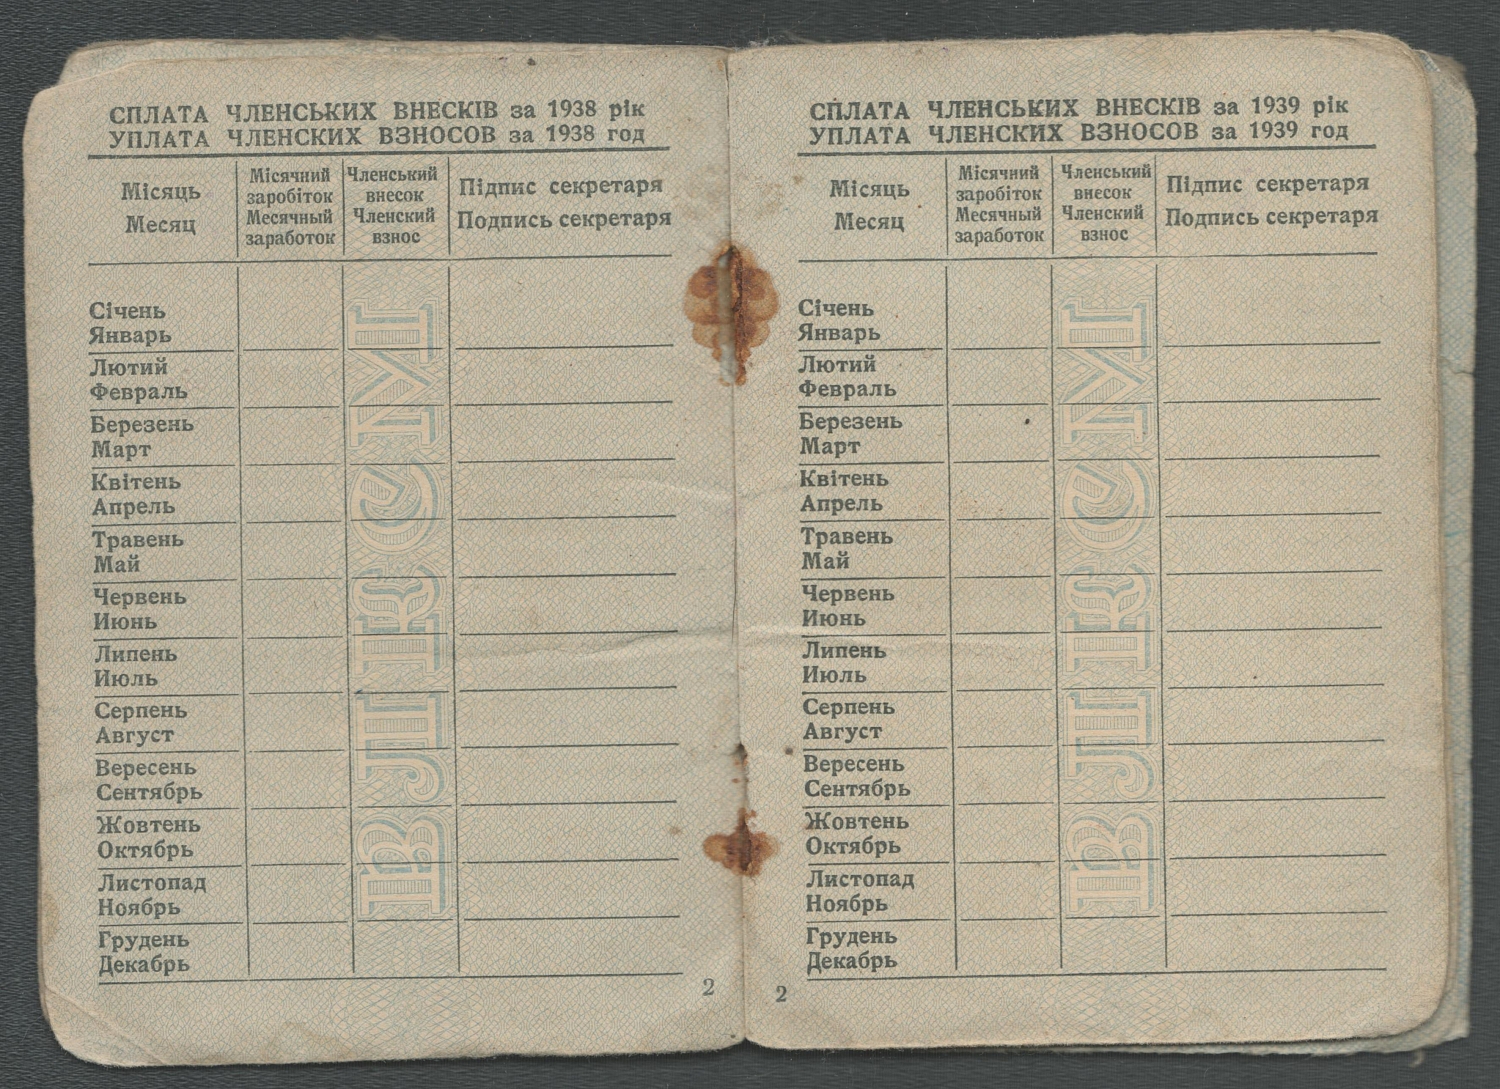 СПЛАТА ЧЛЕНСЬКИХ ВНЕСКІВ за 1938 рік
УПЛАТА ЧЛЕНСКИХ ВЗНОСОВ за 1938 год
Місяць
Месяц
Місячний
заробіток
Месячный
заработок
Членський
внесок
Членский
взнос
Підпис секретаря
Подпись секретаря
Січень
Январь
Лютий
Февраль
Березень
Март
Квітень
Апрель
Травень
Май
Червень
Июнь
Липень
Июль
Серпень
Август
Вересень
Сентябрь
Жовтень
Октябрь
Листопад
Ноябрь
Грудень
Декабрь
ВЛКСМ
2
СПЛАТА ЧЛЕНСЬКИХ ВНЕСКІВ за 1939 рік
УПЛАТА ЧЛЕНСКИХ ВЗНОСОВ за 1939 год
Місяць
Месяц
Місячний
заробіток
Месячный
заработок
Членський
внесок
Членский
взнос
Підпис секретаря
Подпись секретаря
Січень
Январь
Лютий
Февраль
Березень
Март
Квітень
Апрель
Травень
Май
Червень
Июнь
Липень
Июль
Серпень
Август
Вересень
Сентябрь
Жовтень
Октябрь
Листопад
Ноябрь
Грудень
Декабрь
ВЛКСМ
2